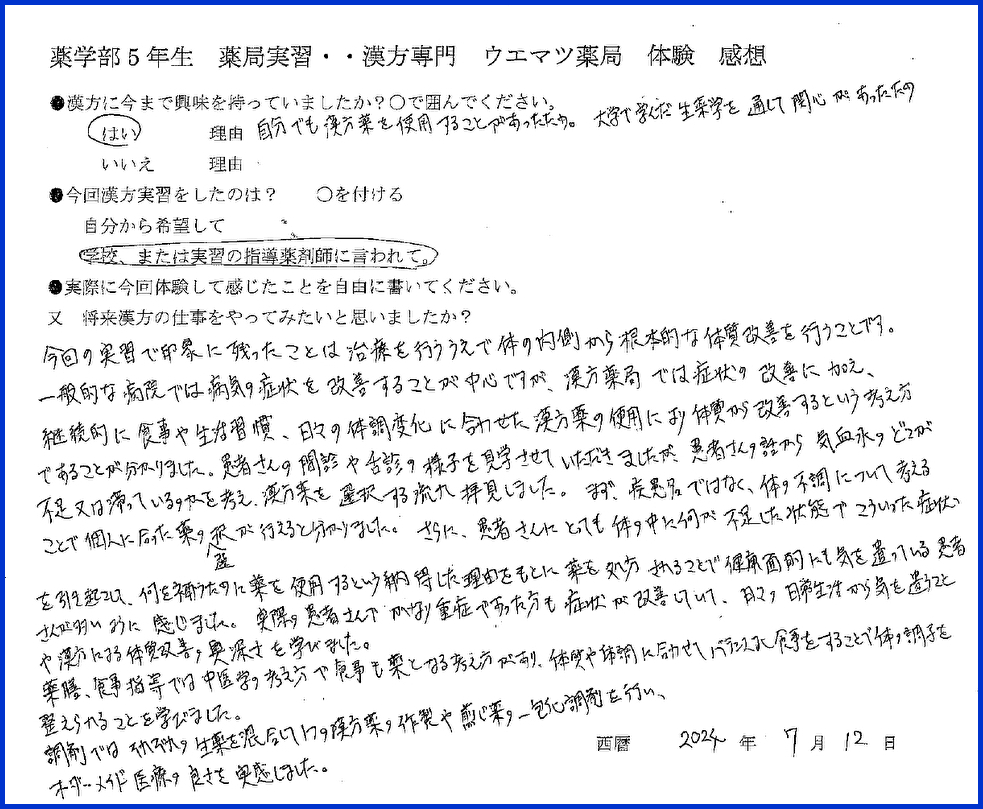 薬学部5年生 薬局実習・・漢方専門 ウエマツ薬局 体験 感想
●漢方に今まで興味を持っていましたか?○で囲んでください。
はい 理由 自分でも漢方薬を使用することがあったため。 大学で学んだ生薬学を通して関心があったため
いいえ 理由
●今回漢方実習をしたのは? ○を付ける
自分から希望して
学校、または実習の指導薬剤師に言われて。
●実際に今回体験して感じたことを自由に書いてください。
又 将来漢方の仕事をやってみたいと思いましたか?
今回の実習で印象に残ったことは治療を行ううえで体の内側から根本的な体質改善を行うことです。
一般的な病院では病気の症状を改善することが中心ですが、漢方薬局では症状の改善に加え、
継続的に食事や生活習慣、日々の体調変化に合わせた漢方薬の使用により体質から改善するという考え方
であることが分かりました。患者さんの問診や舌診の様子を見学させていただきましたが、患者さんの話から気血水のどこが
不足又は滞っているのかを考え、漢方薬を選択する流れを拝見しました。まず、疾患名ではなく、体の不調について考える
ことで個人に合った薬の選択が行えると分かりました。さらに、患者さんにとっても体の中に何が不足した状態でこういった症状
を引き起こし、何を補うために薬を使用するという納得した理由をもとに薬を処方されることで健康面的にも気を遣っている患者
さんが多いように感じました。実際の患者さんでかなり重症であった方も症状が改善していて、日々の日常生活から気を遣うこと
や漢方による体質改善の奥深さを学びました。
薬膳、食事指導では中医学の考え方で食事も薬となる考え方があり、体質や体調に合わせてバランスよく食事をすることで体の調子を
整えられることを学びました。
調剤ではそれぞれの生薬を混合して1つの漢方薬の作製や煎じ薬の一包化調剤を行い、
オーダーメイド医療の良さを実感しました。
西暦 2024 年 7 月 12 日